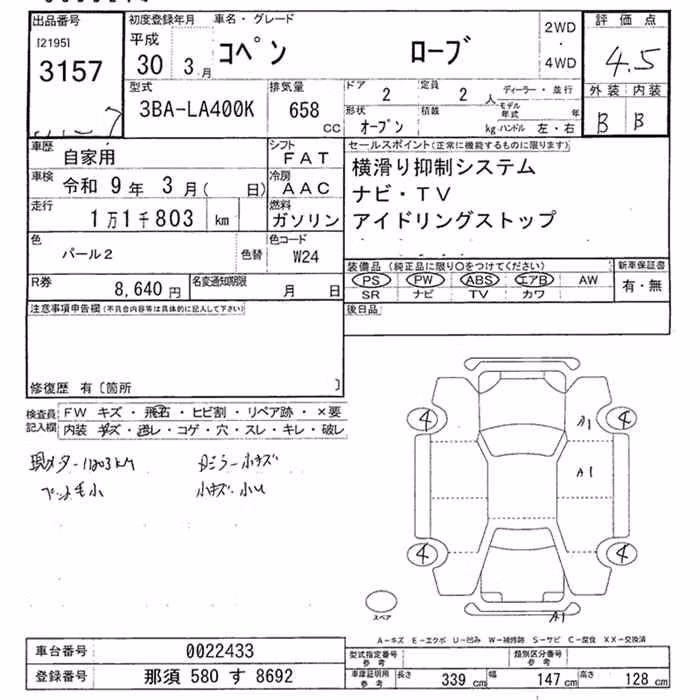 出品番号 初度登録年月 車名・グレード 評価点
[2195] 平成 コペン ローブ 2WD
3157 30 3月 ・ 4WD 4.5
型式 排気量 ドア 定員 ディーラー・並行 外装 内装
3BA-LA400K 658 CC 2 2人 モデル年式 年 B B
形状 積載
オープン kg ハンドル 左・右
車歴 自家用 シフト FAT セールスポイント(正常に機能するものに限ります)
車検 令和 9年 3月( 日) 冷房 AAC 横滑り抑制システム
ナビ・TV
走行 1万1千803 km 燃料 ガソリン アイドリングストップ
色 パール2 色替 色コード W24
R券 8,640円 名変通知期限 月 日
装備品(純正品に限り○をつけてください) 新車保証書
PS PW ABS エアB AW 有・無
SR ナビ TV カワ
注意事項申告欄(不具合内容等は具体的に記入して下さい) 後日品
修復歴 有〔箇所 〕
検査員記入欄 FW キズ・飛石・ヒビ割・リペア跡・×要
内装 キズ・汚レ・コゲ・穴・スレ・キレ・破レ
現メーター11803km
小キズ・小U
4 4
A1
A1
4 4
スペア
A1
A-キズ E-エクボ U-凹み W-補修跡 S-サビ C-腐食 XX-交換済
車台番号 0022433 型式指定番号 参考 類別区分番号 参考
登録番号 那須 580 す 8692 車庫証明用 参考 長さ 339cm 幅 147cm 高さ 128cm